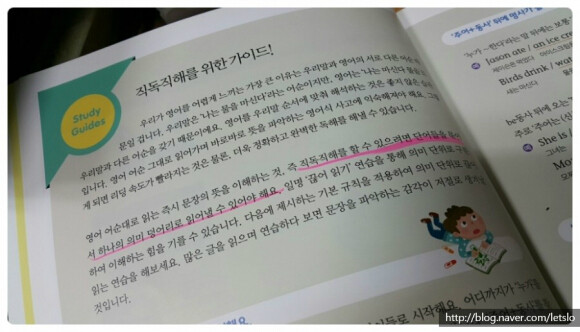 Study
Guides
직독직해를 위한 가이드!
우리가 영어를 어렵게 느끼는 가장 큰 이유는 우리말과 영어의 서로 다른 어순
문일 겁니다. 우리말은 '나는 물을 마신다'라는 어순이지만, 영어는 '나는 마신다 물을'
우리말과 다른 어순을 갖기 때문이에요. 영어를 우리말 순서에 맞춰 해석하는 것은 좋지 않은
입니다. 영어 어순 그대로 읽어가며 바로바로 뜻을 파악하는 영어식 사고에 익숙해져야 해요.
게 되면 리딩 속도가 빨라지는 것은 물론, 더욱 정확하고 완벽한 독해를 해낼 수 있습니다.
영어 어순대로 읽는 즉시 문장의 뜻을 이해하는 것, 즉 직독직해를 할 수 있으려면 단어들을
서 하나의 의미 덩어리로 읽어낼 수 있어야 해요. 일명 '끊어 읽기' 연습을 통해 의미 단위를
하여 이해하는 힘을 기를 수 있습니다. 다음에 제시하는 기본 규칙을 적용하여 의미 단위로
읽는 연습을 해보세요. 많은 글을 읽으며 연습하다 보면 문장을 파악하는 감각이 저절로
것입니다.
시작해요. 어디까지가 '누가
'주어+동사' 뒤에 명사가
'누가 ~한다'라는 말 뒤에는 보통
Jason ate / an ice
제이슨은 먹었다
Birds drink / wat
새는 마신다
be동사 뒤에 오는
주로, '주어는 (신
She is /
그녀는
http://blog.naver.com/letslo